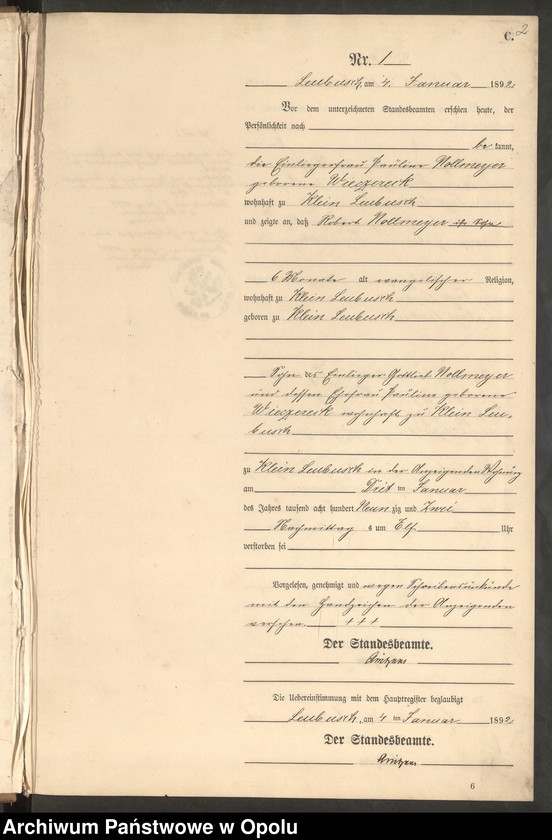 C. 2
Nr. 1
Leubusch, am 4. Januar 1892
Vor dem unterzeichneten Standesbeamten erschien heute, der
Persönlichkeit nach
bekannt,
die Einliegerfrau Pauline Nollmeyer
geborene Wieczereck
wohnhaft zu Klein Leubusch
und zeigte an, daß Robert Nollmeyer
6 Monate alt evangelischer Religion,
wohnhaft zu Klein Leubusch
geboren zu Klein Leubusch
Sohn des Einlieger Gottlieb Nollmeyer
und dessen Ehefrau Pauline geborene
Wieczereck wohnhaft zu Klein Leu-
busch
zu Klein Leubusch in der Anzeigenden Wohnung
am Drit ten Januar
des Jahres tausend acht hundert Neun zig und Zwei
Nachmittag s um Elf Uhr
verstorben sei
Vorgelesen, genehmigt und wegen Schreibensunkunde
mit den Handzeichen der Anzeigenden
versehen. + + +
Der Standesbeamte.
Die Uebereinstimmung mit dem Hauptregister beglaubigt
Leubusch, am 4 ten Januar 1892
Der Standesbeamte.
6
Archiwum Państwowe w Opolu